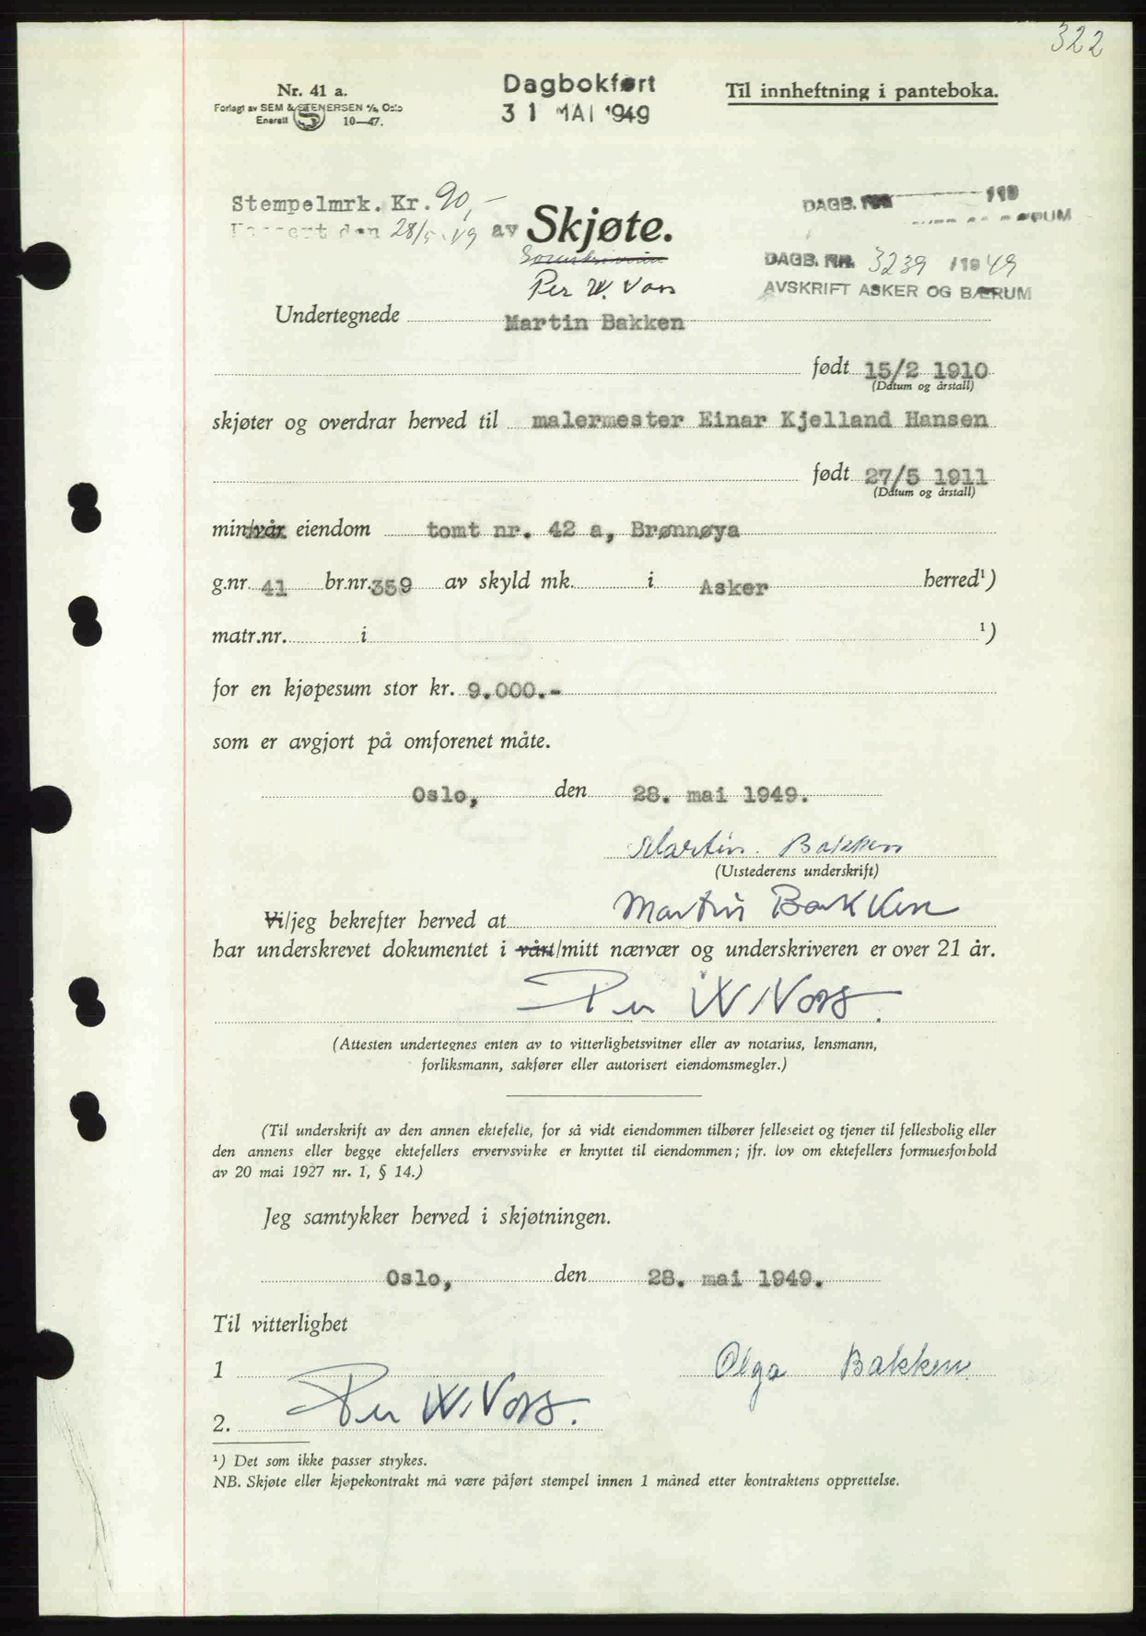 322
Nr. 41 a.
Forlagt av SEM & STENERSEN A/S, Oslo
Enerett 10—47.
Dagbokført
31 MAI 1949
Til innheftning i panteboka.
Stempelmrk. Kr. 90,-
den 28/5 49 av
Skjøte.
Per W. Voss
DAGB. NR. 119
DAGB. NR. 3239 /1949
AVSKRIFT ASKER OG BÆRUM
Undertegnede Martin Bakken
født 15/2 1910
(Datum og årstall)
skjøter og overdrar herved til malermester Einar Kjelland Hansen
født 27/5 1911
(Datum og årstall)
min/vår eiendom tomt nr. 42 a, Brønnøya
g.nr. 41 br.nr. 359 av skyld mk. i Asker herred¹)
matr.nr. i ¹)
for en kjøpesum stor kr. 9.000.-
som er avgjort på omforenet måte.
Oslo, den 28. mai 1949.
Martin Bakken
(Utstederens underskrift)
Vi/jeg bekrefter herved at Martin Bakken
har underskrevet dokumentet i vårt/mitt nærvær og underskriveren er over 21 år.
Per W Voss.
(Attesten undertegnes enten av to vitterlighetsvitner eller av notarius, lensmann,
forliksmann, sakfører eller autorisert eiendomsmegler.)
(Til underskrift av den annen ektefelle, for så vidt eiendommen tilhører felleseiet og tjener til fellesbolig eller
den annens eller begge ektefellers ervervsvirke er knyttet til eiendommen; jfr. lov om ektefellers formuesforhold
av 20 mai 1927 nr. 1, § 14.)
Jeg samtykker herved i skjøtningen.
Oslo, den 28. mai 1949.
Til vitterlighet
1 Olga Bakken
Per W. Voss.
2.
¹) Det som ikke passer strykes.
NB. Skjøte eller kjøpekontrakt må være påført stempel innen 1 måned etter kontraktens opprettelse.